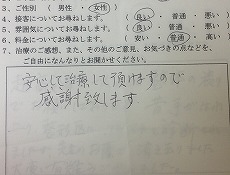 3、ご性別 （ 男性 ・ 女性 ）
4、接客についてお尋ねします。 （ 良い ・ 普通 ・ 悪い ）
5、雰囲気についてお尋ねします。 （ 良い ・ 普通 ・ 悪い ）
6、料金についてお尋ねします。 （ 安い ・ 普通 ・ 高い ）
7、治療のご感想、また、その他のご意見、お気づきの点などを、
ご自由になんなりとお聞かせください。
安心して治療して頂けますので
感謝致します